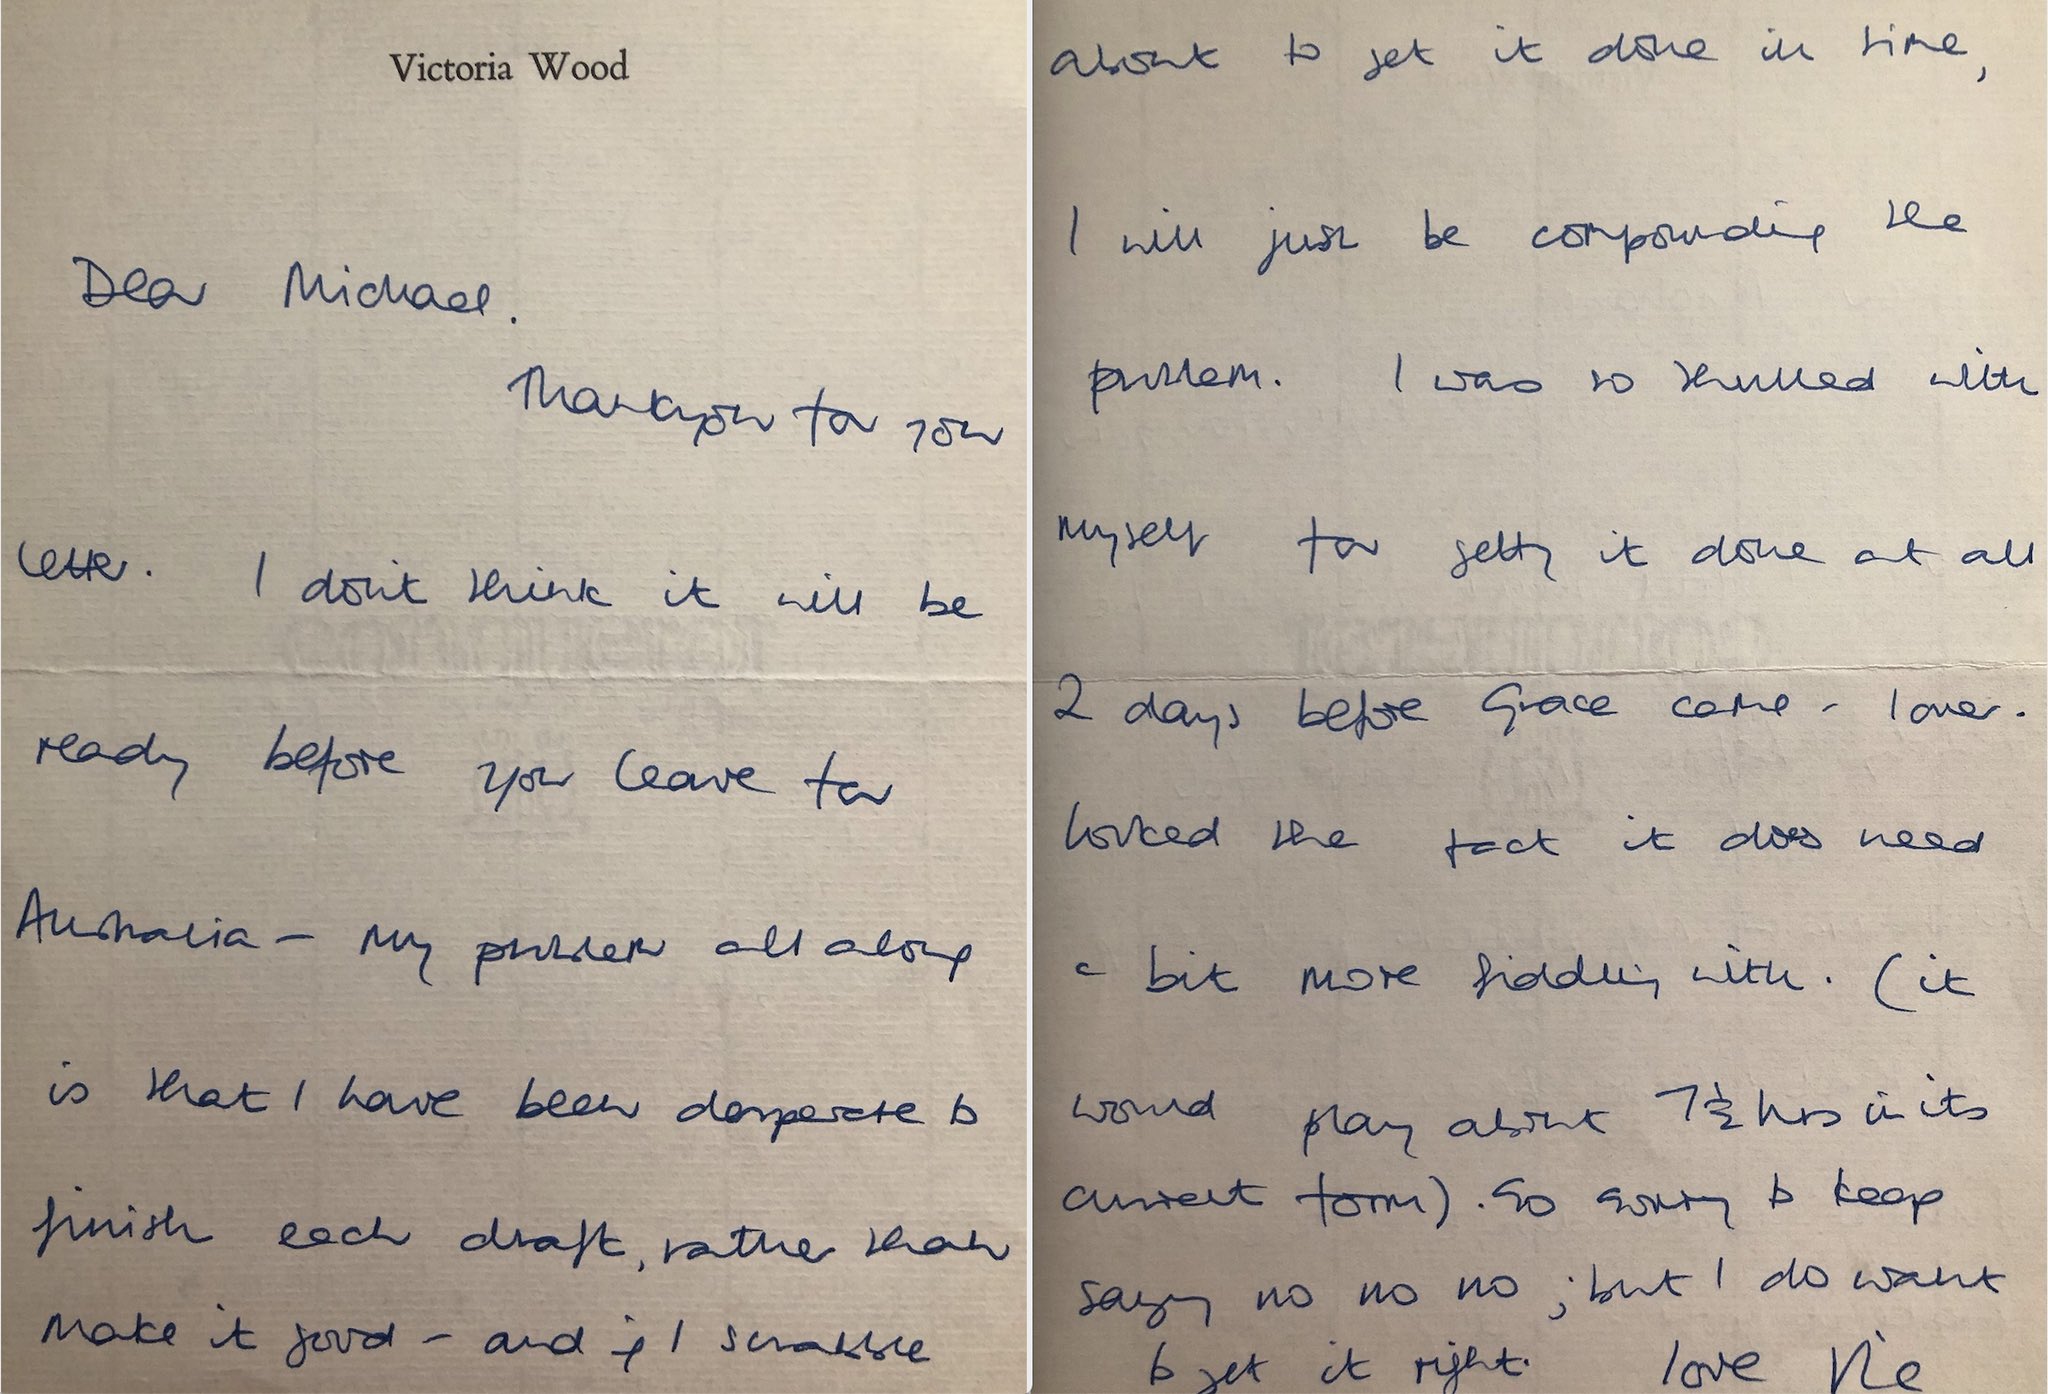 Victoria Wood
Dear Michael.
Thankyou for your
letter. I don't think it will be
ready before you leave for
Australia – my problem all along
is that I have been desperate to
finish each draft, rather than
make it good – and if I scrabble
about to get it done in time,
I will just be compounding the
problem. I was so thrilled with
myself for getting it done at all
2 days before Grace came – I over-
looked the fact it does need
a bit more fiddling with. (it
would play about 7½ hrs in its
current form). So sorry to keep
saying no no no; but I do want
to get it right. love Vic